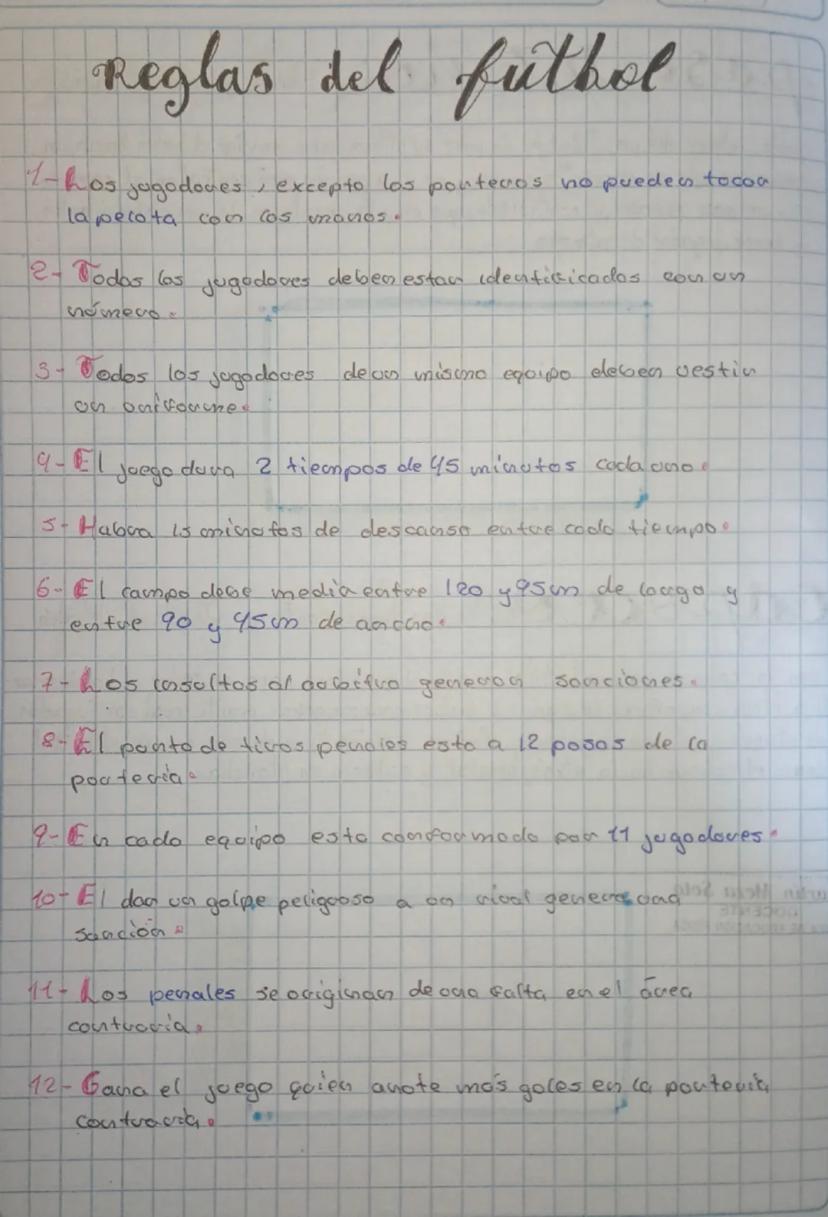 Reglas del fútbol
1- Los jugadores, excepto los porteros no pueden tocar
la pelota con las manos.
2- Todos los jugadores deben estar identificados con un
número.
3- Todos los jugadores de un mismo equipo deben vestir
un uniforme.
4- El juego dura 2 tiempos de 45 minutos cada uno.
5- Habra 15 minutos de descanso entre cada tiempo.
6- El campo debe medir entre 120 y 95m de largo y
entre 90 y 45m de ancho.
7- Los insultos al arbitro generan sanciones.
8- El punto de tiros penales esta a 12 pasos de la
portería.
9- En cada equipo esta conformado por 11 jugadores.
10- El dar un golpe peligroso a un rival genera una
sanción.
11- Los penales se originan de una falta en el área
contraria.
12- Gana el juego quien anote más goles en la portería
contraria.